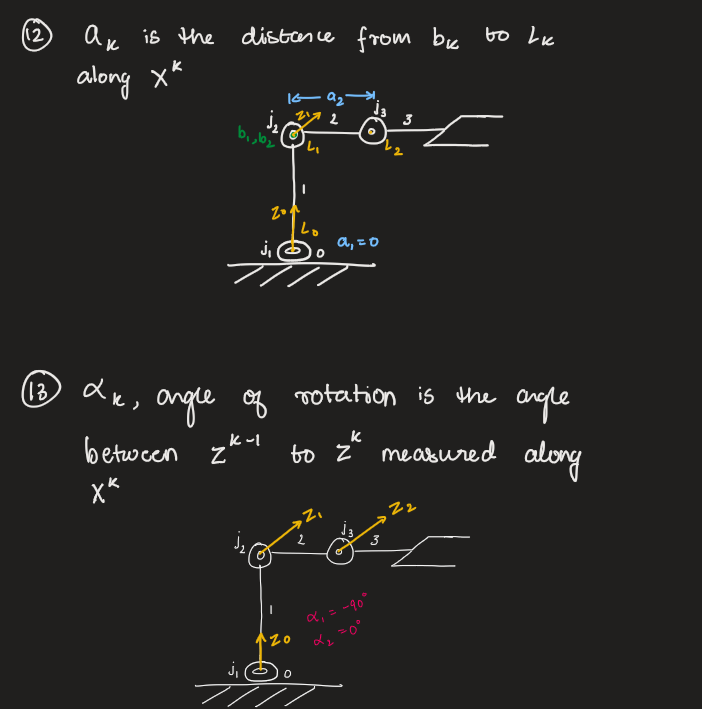 12 aₖ is the distance from bₖ to Lₖ
along Xᵏ
a₂
j₂ z₁ 2 j₃ 3
b₁, b₂ L₁ L₂
1
z₀
L₀
j₁ 0 a₁ = 0
13 αₖ, angle of rotation is the angle
between zᵏ⁻¹ to zᵏ measured along
Xᵏ
z₁ z₂
j₂ 2 j₃ 3
1 α₁ = -90°
z₀ α₂ = 0°
j₁ 0